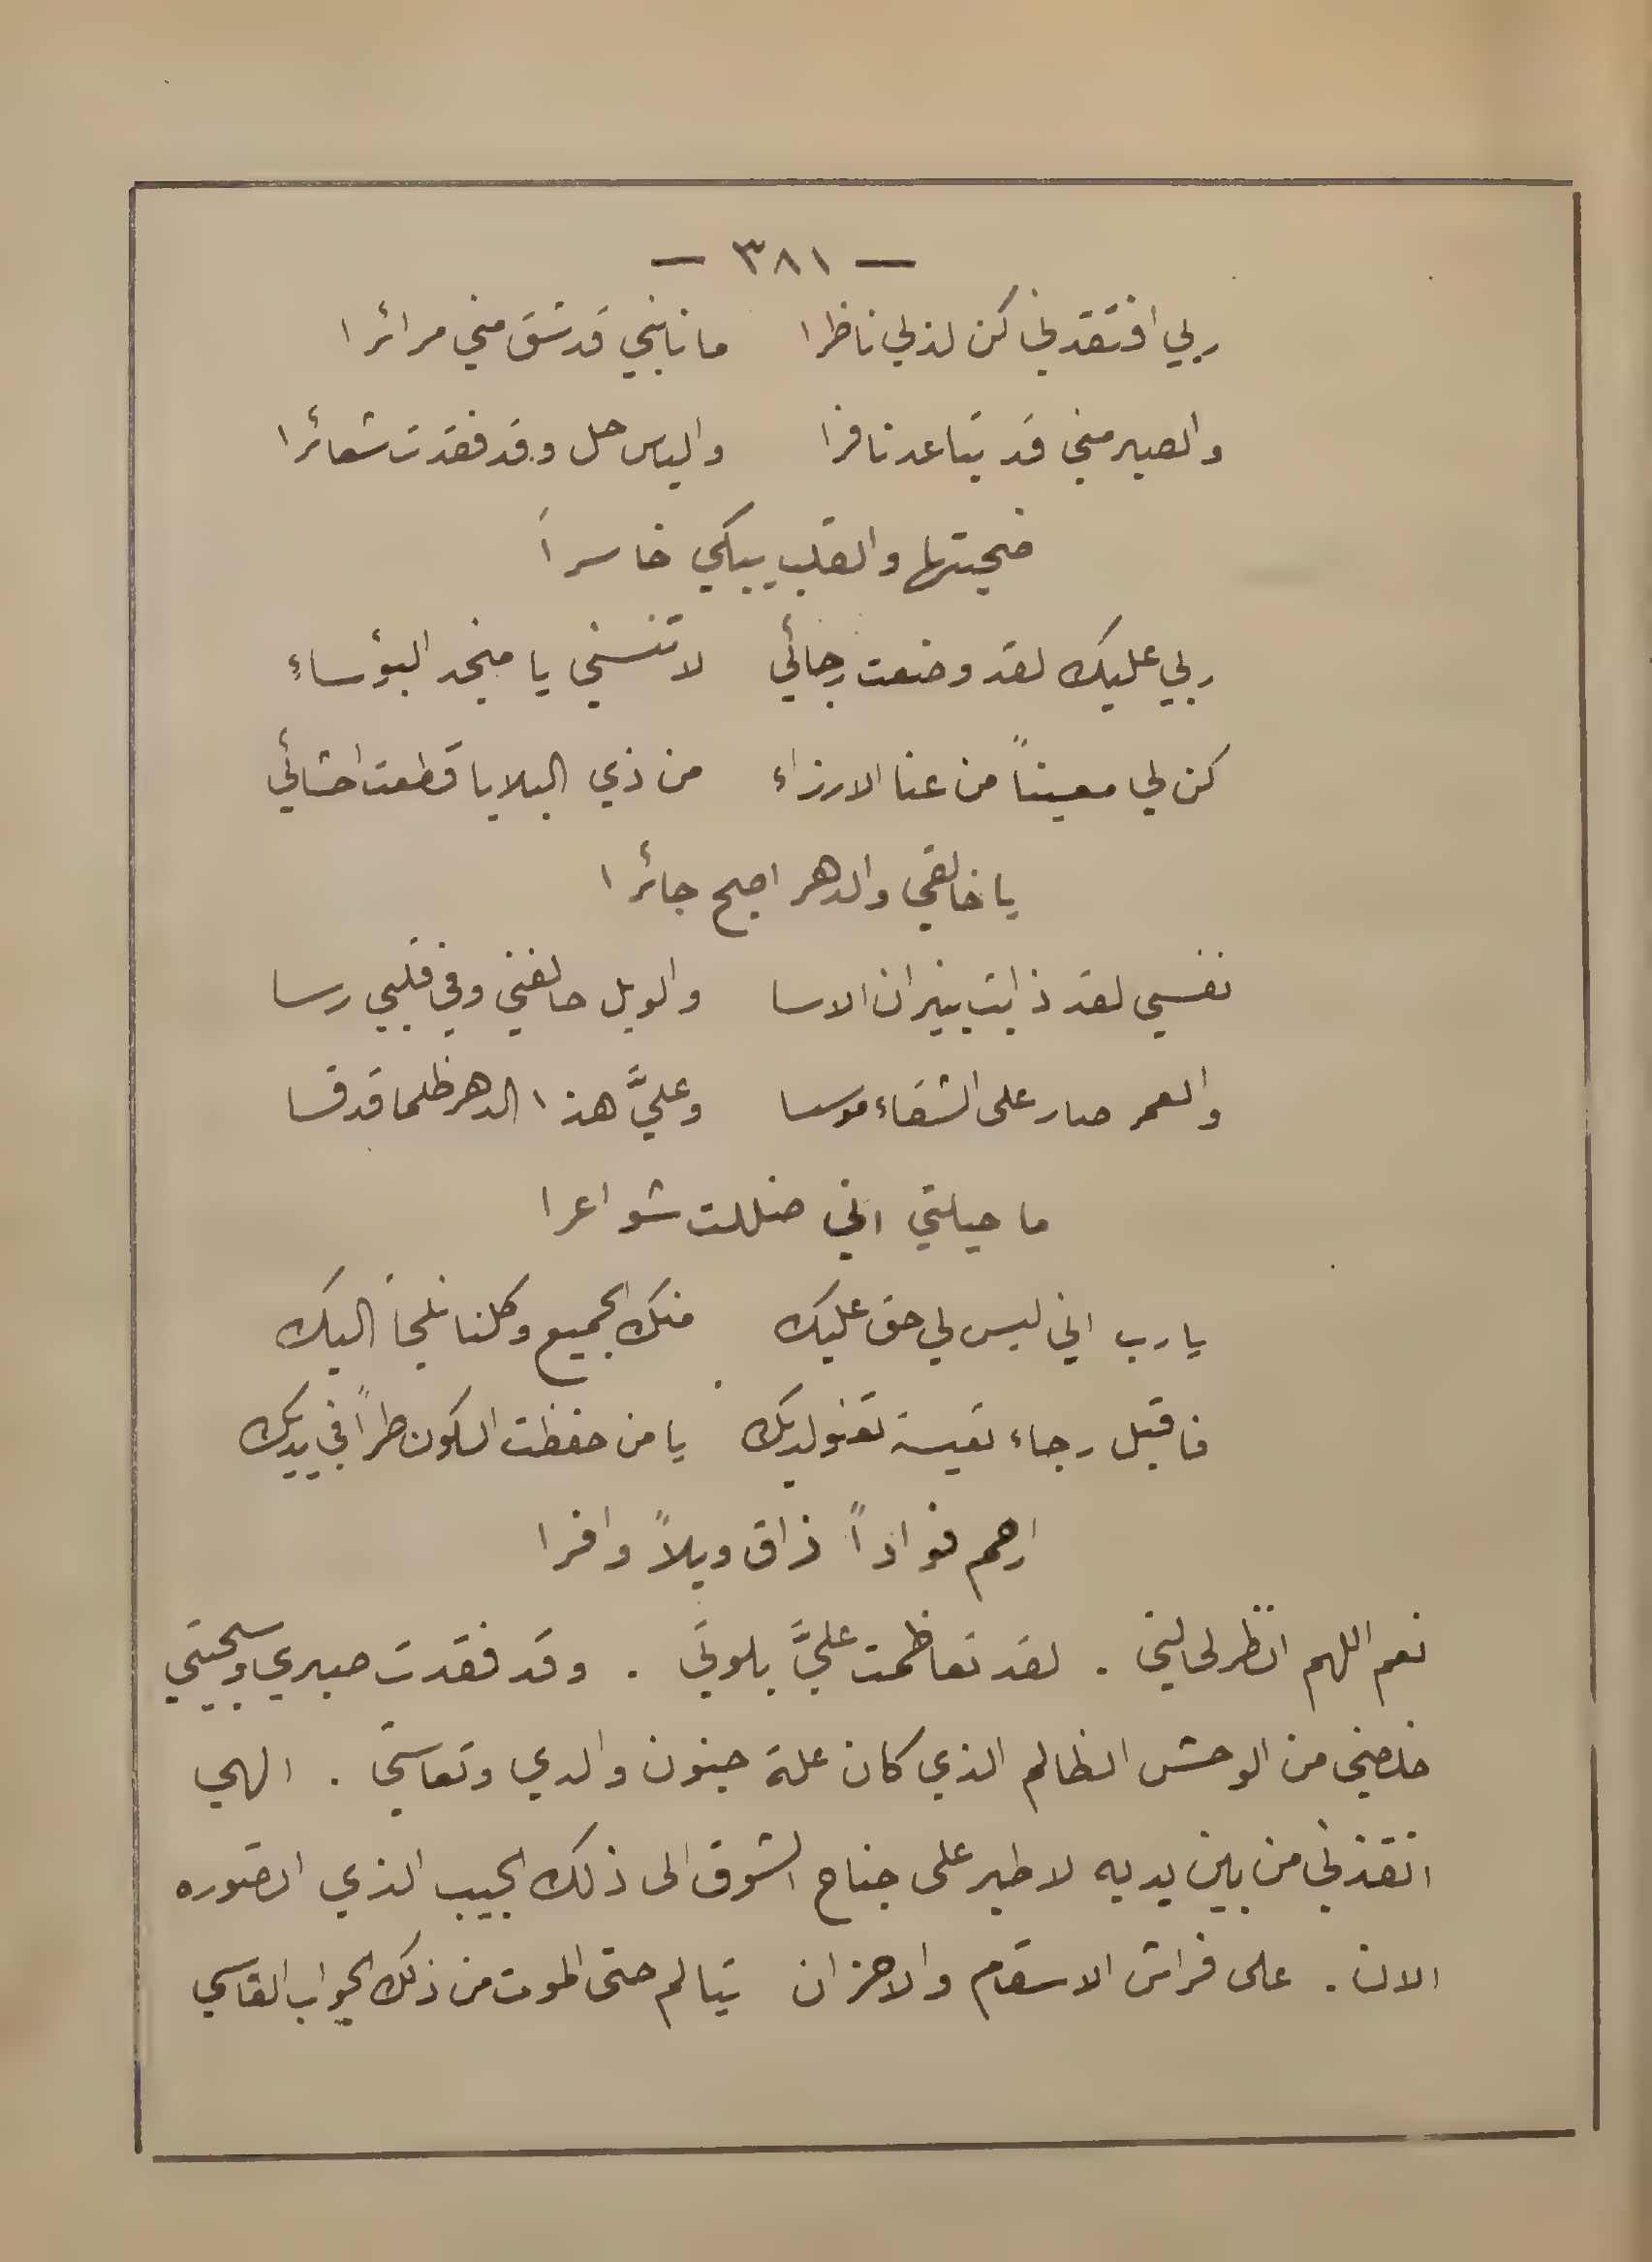 — ٣٨١ —
ربي افتقدني كن لذلي ناظرا ما نابني قد شق مني مرائرا
والصبر مني قد تباعد نافرا والياس حل وقد فقدت شعائرا
ضحيتها والقلب يبكي خاسراً
ربي عليك لقد وضعت رجائي لا تنسني يا منجد البؤساء
كن لي معيناً من عنا الارزاء من ذي البلايا قطعت احشائي
يا خالقي والدهر اصبح جائرا
نفسي لقد ذابت بنيران الاسا والويل حالفني وفي قلبي رسا
والعمر صار على الشقاء موسسا وعليَّ هذا الدهر ظلما قد قسا
ما حيلتي اني ضللت شواعرا
يا رب اني ليس لي حق عليك منك الجميع وكلنا نلجأ اليك
فاقبل رجاء تعيسة تعنو لديك يا من حفظت الكون طراً في يديك
ارحم فواداً ذاق ويلاً وافرا
نعم اللهم انظر لحالتي . لقد تعاظمت عليَّ بلوتي . وقد فقدت صبري وسجيتي
خلصني من الوحش الظالم الذي كان علة جنون والدي وتعاستي . الهي
انقذني من بين يديه لاطير على جناح الشوق الى ذلك الحبيب الذي اتصوره
الان . على فراش الاسقام والاحزان يتالم حتى الموت من ذلك الجواب القاسي